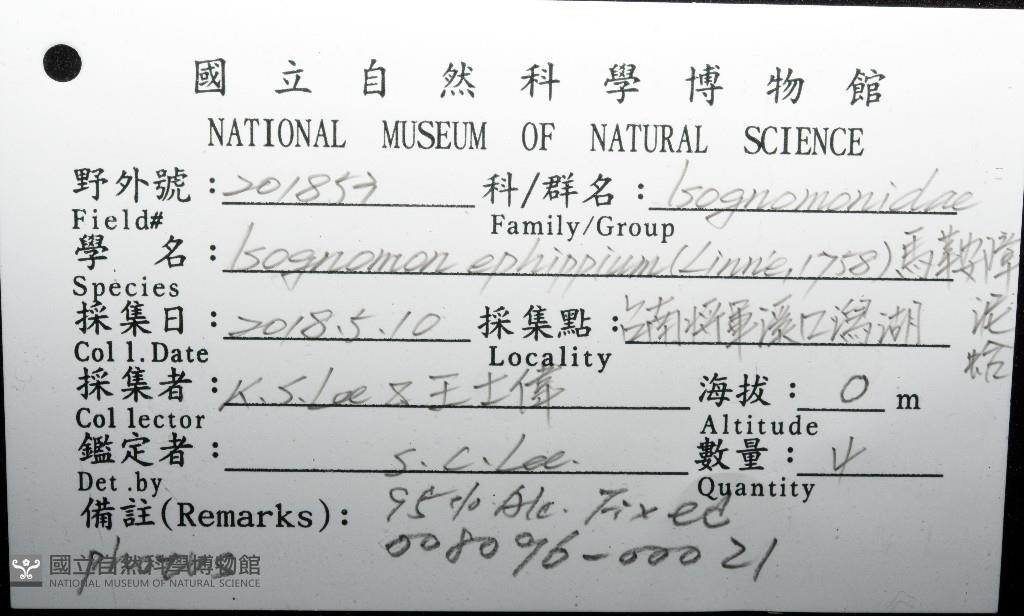 國立自然科學博物館
NATIONAL MUSEUM OF NATURAL SCIENCE
野外號：201853 科/群名：Isognomonidae
Field# Family/Group
學 名：Isognomon ephippium (Linné, 1758) 馬鞍障泥蛤
Species
採集日：2018.5.10 採集點：台南將軍溪口潟湖
Coll.Date Locality
採集者：K.S.Lee & 王士偉 海拔：0 m
Collector Altitude
鑑定者：S.C.Lee. 數量：4
Det.by Quantity
備註(Remarks)：95% Alc. Fixed
008096-00021
國立自然科學博物館
NATIONAL MUSEUM OF NATURAL SCIENCE